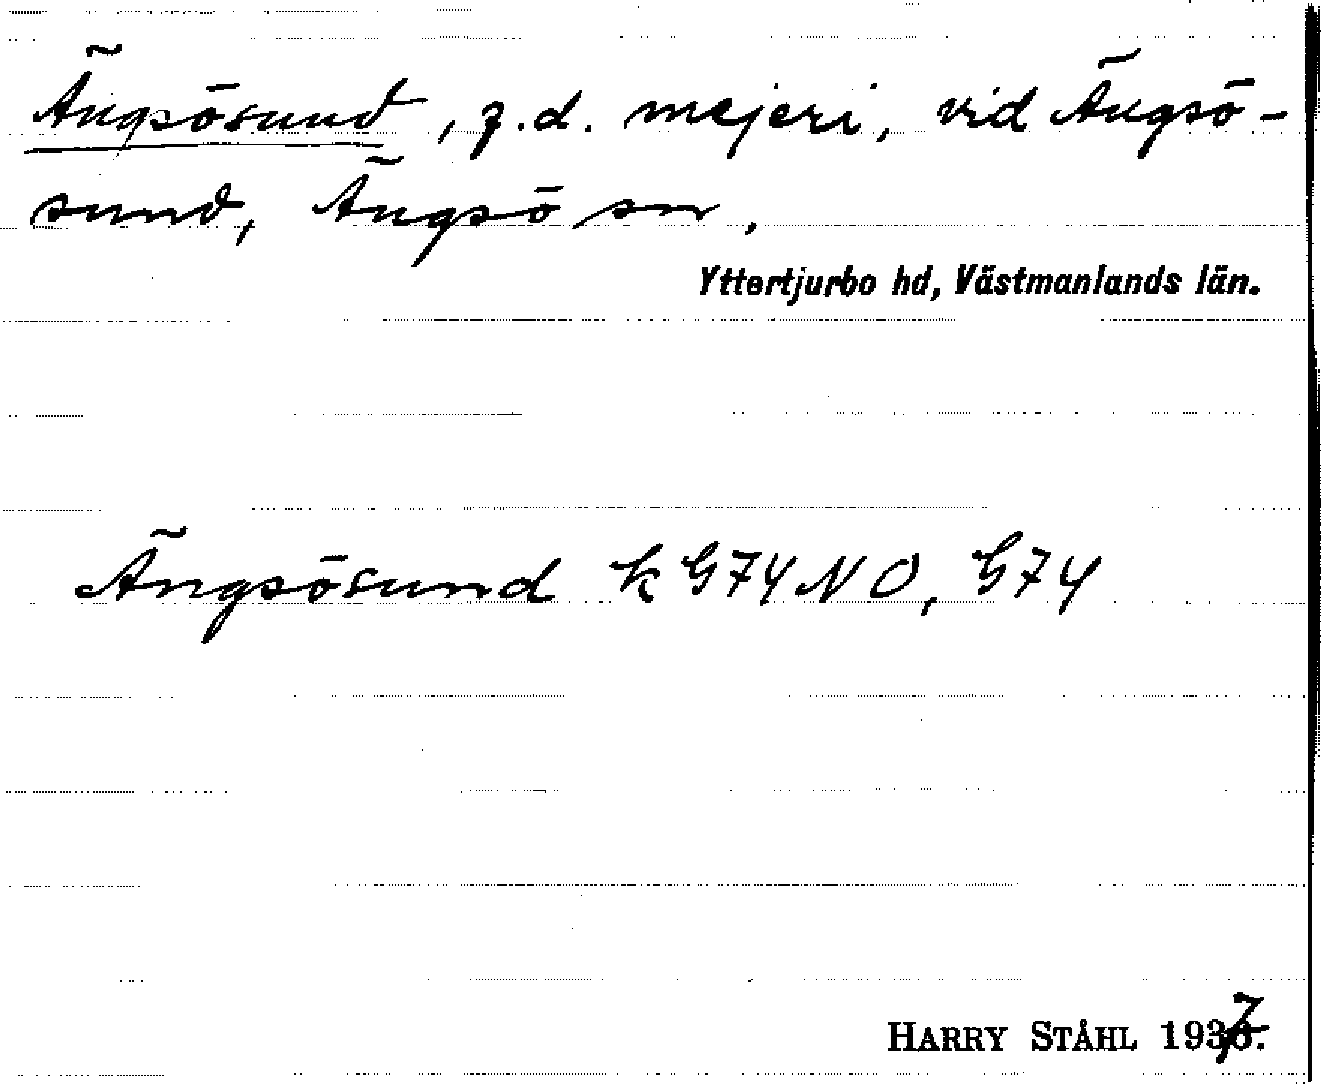 Ängsösund, f.d. mejeri, vid Ängsö-
sund, Ängsö sn,
Yttertjurbo hd, Västmanlands län.
Ängsösund k G74 NO, G74
HARRY STÅHL 1937.